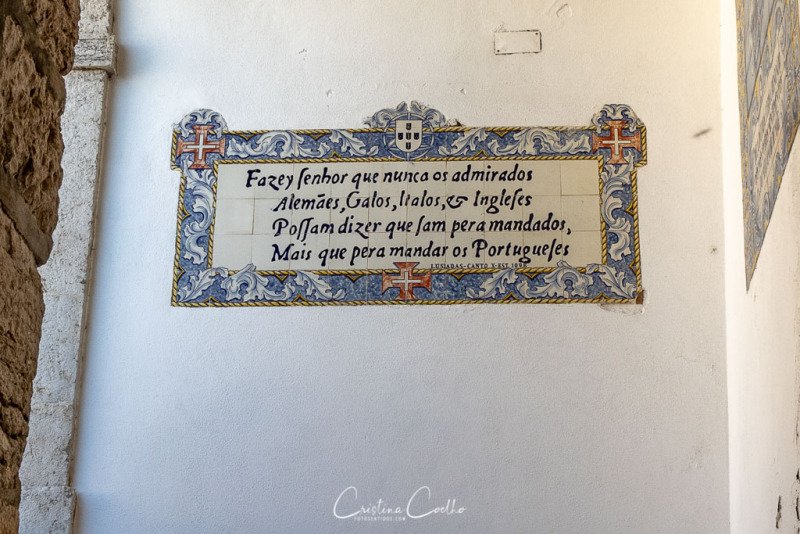 Fazey ſenhor que nunca os admirados
Alemães, Galos, Italos, & Ingleſes
Poſſam dizer que ſam pera mandados,
Mais que pera mandar os Portugueſes
LUSIADAS-CANTO X-EST.
Cristina Coelho
FOTOSENTIDOS.COM